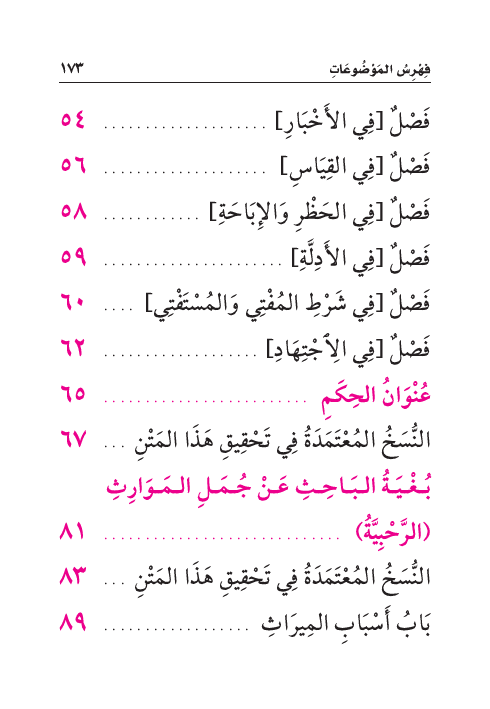 فِهْرِسُ المَوْضُوعَاتِ ١٧٣
فَصْلٌ [فِي الأَخْبَارِ] .................... ٥٤
فَصْلٌ [فِي القِيَاسِ] .................... ٥٦
فَصْلٌ [فِي الحَظْرِ وَالإِبَاحَةِ] ............ ٥٨
فَصْلٌ [فِي الأَدِلَّةِ] ...................... ٥٩
فَصْلٌ [فِي شَرْطِ المُفْتِي وَالمُسْتَفْتِي] .... ٦٠
فَصْلٌ [فِي الِٱجْتِهَادِ] ................... ٦٢
عُنْوَانُ الحِكَمِ ......................... ٦٥
النُّسَخُ المُعْتَمَدَةُ فِي تَحْقِيقِ هَذَا المَتْنِ ... ٦٧
بُغْيَةُ البَاحِثِ عَنْ جُمَلِ المَوَارِثِ
(الرَّحْبِيَّةُ) ............................. ٨١
النُّسَخُ المُعْتَمَدَةُ فِي تَحْقِيقِ هَذَا المَتْنِ ... ٨٣
بَابُ أَسْبَابِ المِيرَاثِ .................. ٨٩